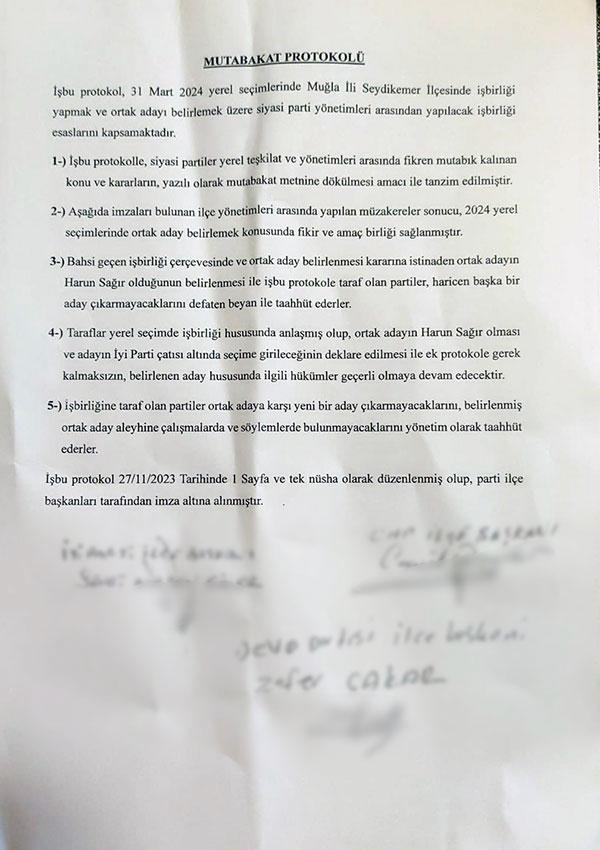 MUTABAKAT PROTOKOLÜ
İşbu protokol, 31 Mart 2024 yerel seçimlerinde Muğla İli Seydikemer İlçesinde işbirliği
yapmak ve ortak adayı belirlemek üzere siyasi parti yönetimleri arasından yapılacak işbirliği
esaslarını kapsamaktadır.
1-) İşbu protokolle, siyasi partiler yerel teşkilat ve yönetimleri arasında fikren mutabık kalınan
konu ve kararların, yazılı olarak mutabakat metnine dökülmesi amacı ile tanzim edilmiştir.
2-) Aşağıda imzaları bulunan ilçe yönetimleri arasında yapılan müzakereler sonucu, 2024 yerel
seçimlerinde ortak aday belirlemek konusunda fikir ve amaç birliği sağlanmıştır.
3-) Bahsi geçen işbirliği çerçevesinde ve ortak aday belirlenmesi kararına istinaden ortak adayın
Harun Sağır olduğunun belirlenmesi ile işbu protokole taraf olan partiler, haricen başka bir
aday çıkarmayacaklarını defaten beyan ile taahhüt ederler.
4-) Taraflar yerel seçimde işbirliği hususunda anlaşmış olup, ortak adayın Harun Sağır olması
ve adayın İyi Parti çatısı altında seçime girileceğinin deklare edilmesi ile ek protokole gerek
kalmaksızın, belirlenen aday hususunda ilgili hükümler geçerli olmaya devam edecektir.
5-) İşbirliğine taraf olan partiler ortak adaya karşı yeni bir aday çıkarmayacaklarını, belirlenmiş
ortak aday aleyhine çalışmalarda ve söylemlerde bulunmayacaklarını yönetim olarak taahhüt
ederler.
İşbu protokol 27/11/2023 Tarihinde 1 Sayfa ve tek nüsha olarak düzenlenmiş olup, parti ilçe
başkanları tarafından imza altına alınmıştır.
CHP İlçe BAŞKANI
DEVA Partisi ilçe başkanı
Zafer ÇAKAR